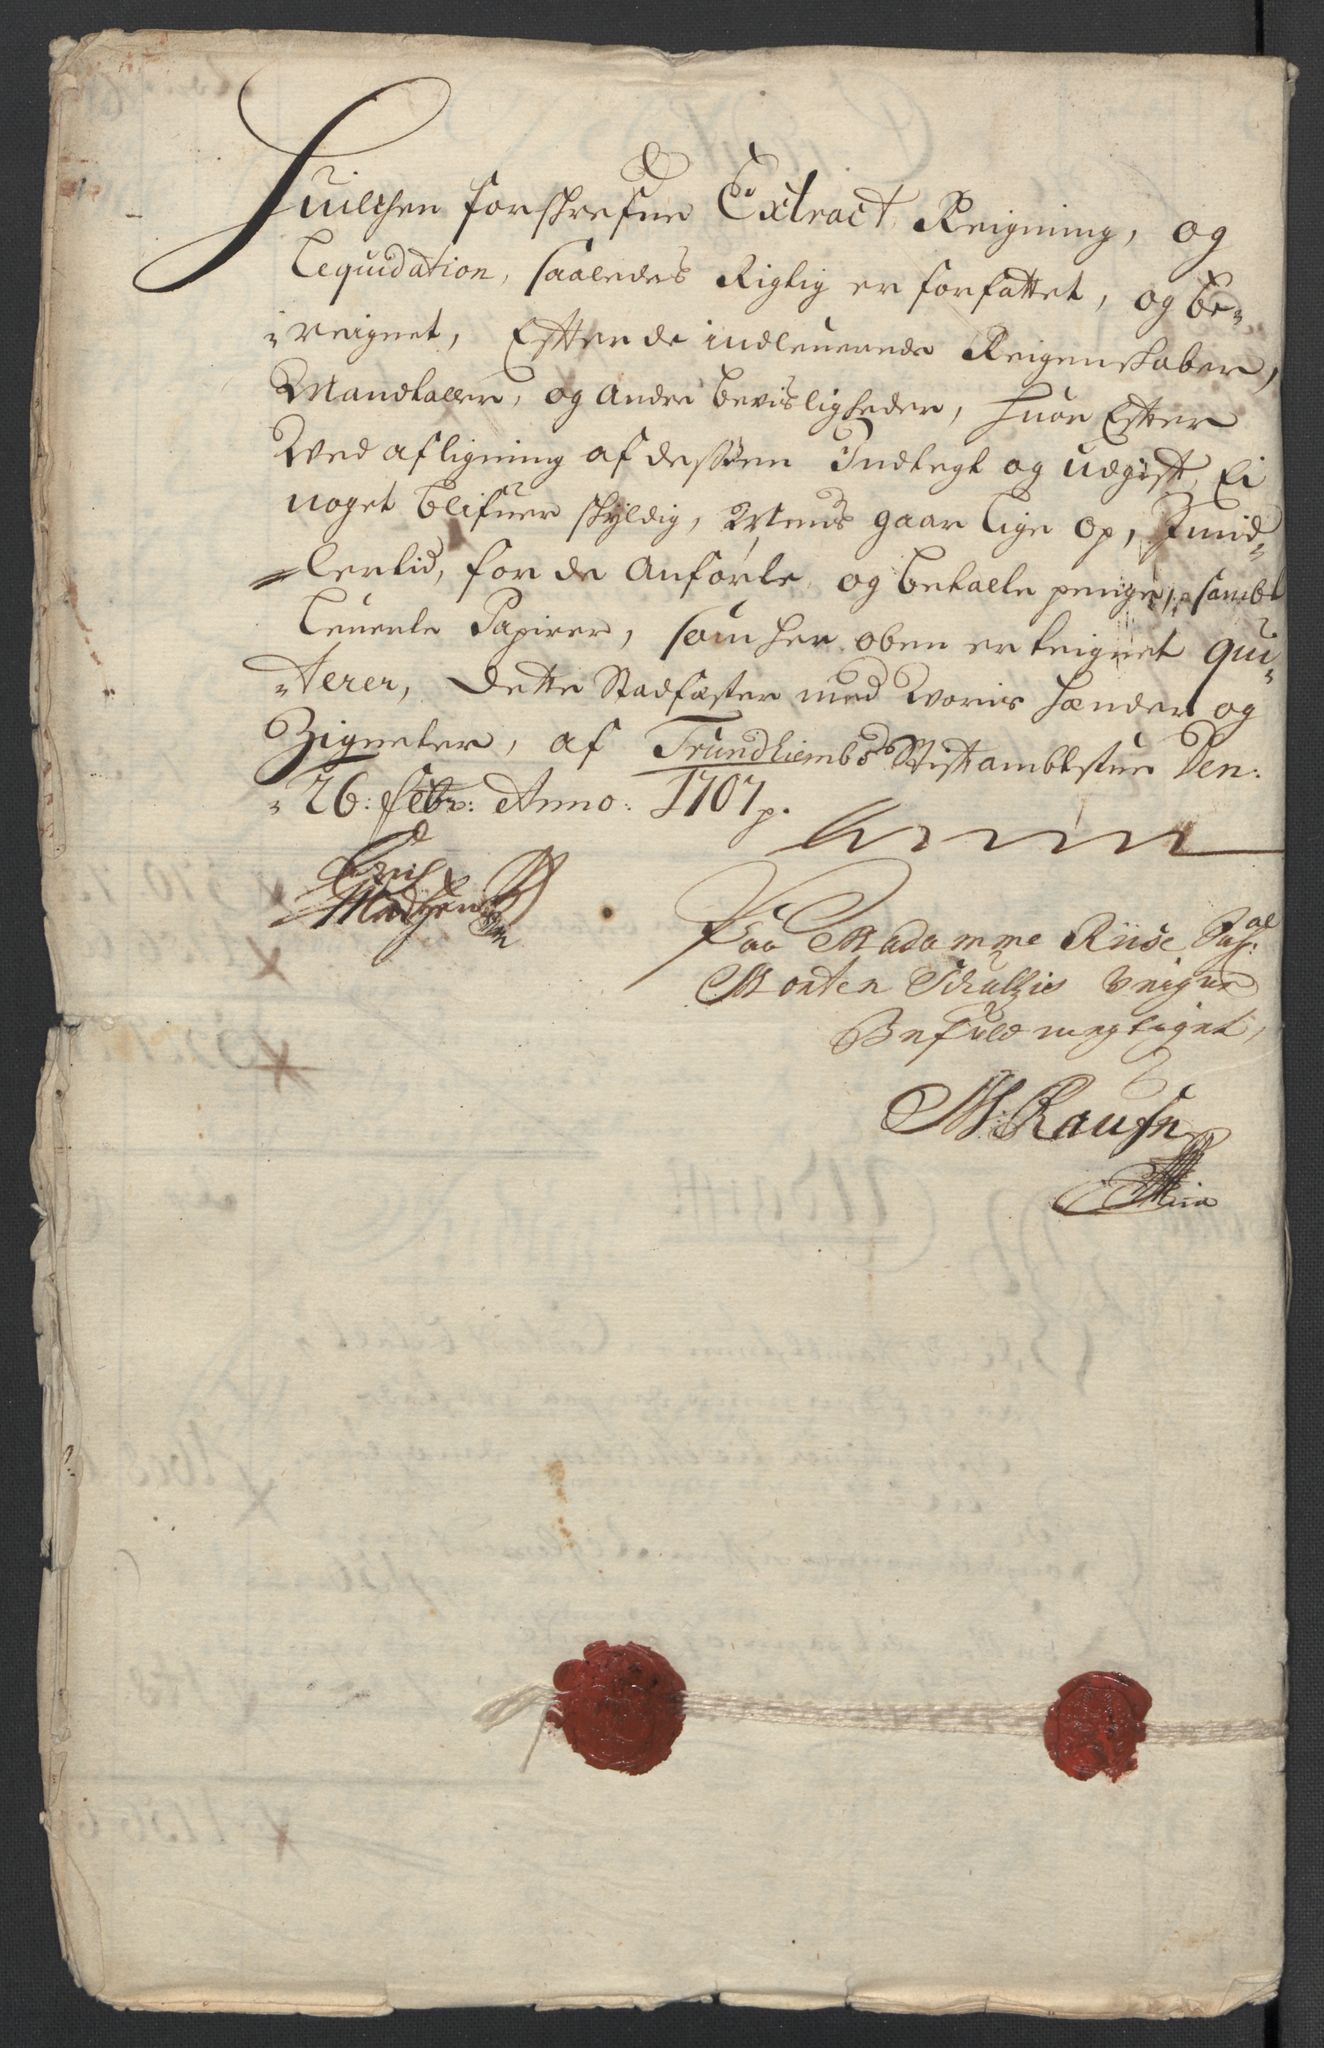 Huilchen forskrefne Extract Reigning, og
Liquidation, saaledes Rigtig er forfattet, og be-
reignet, Effter de indleuerede Reigenskaber,
Mandtaller, og andre bevisligheder, huor Efter
Wed afligning af dessen Indtegt og udgifft, Ei
noget blifuer skyldig, Mens gaar lige op, Imid-
lertid, for de Anførte og betalte penge, sambt
leuerte Papirer, som her oben er teignet qui-
terer, dette Stadfæster med Woris hænder og
Zigneter, af Trundhiembs Stifftambtstue Den:
26: Febr: Anno: 1707 p.
Erich
Madtzen
Paa Madamme Riise Sahl:
Morten Schultzis Veigne
Befuldmegtiget,
M: Rausn